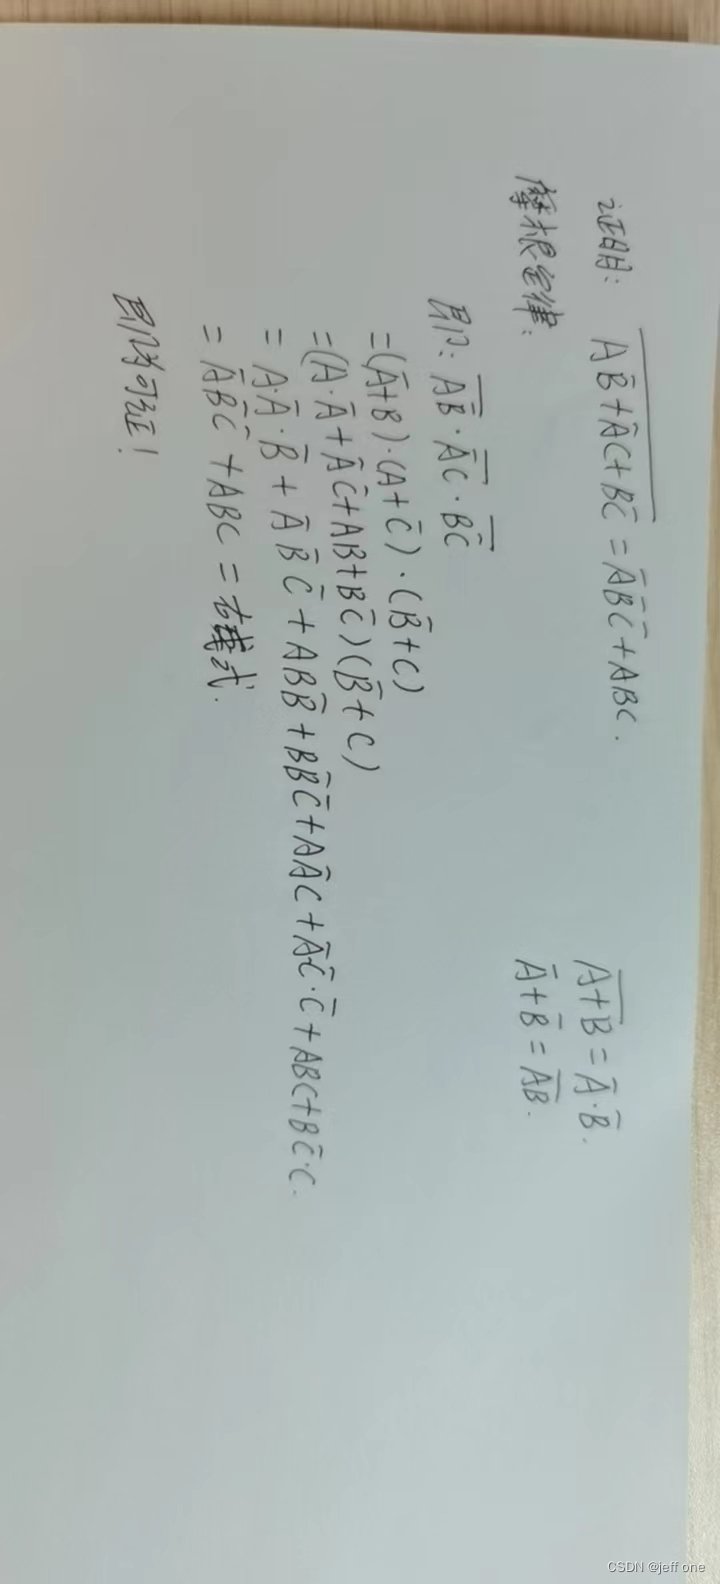 证明: $\overline{A\bar{B}+\bar{A}C+B\bar{C}}=\bar{A}\bar{B}\bar{C}+ABC.$
摩根定律:
$\overline{A+B}=\bar{A}\cdot\bar{B}.$
$\bar{A}+\bar{B}=\overline{AB}.$
即: $\overline{A\bar{B}}\cdot\overline{\bar{A}C}\cdot\overline{B\bar{C}}$
$=(\bar{A}+B)\cdot(A+\bar{C})\cdot(\bar{B}+C)$
$=(A\cdot\bar{A}+\bar{A}\bar{C}+AB+B\bar{C})(\bar{B}+C)$
$=A\cdot\bar{A}\cdot\bar{B}+\bar{A}\bar{B}\bar{C}+AB\bar{B}+B\bar{B}\bar{C}+A\bar{A}C+\bar{A}\bar{C}\cdot\bar{C}+ABC+B\bar{C}\cdot C.$
$=\bar{A}\bar{B}\bar{C}+ABC=$右式.
即为可证!
CSDN @jeff one